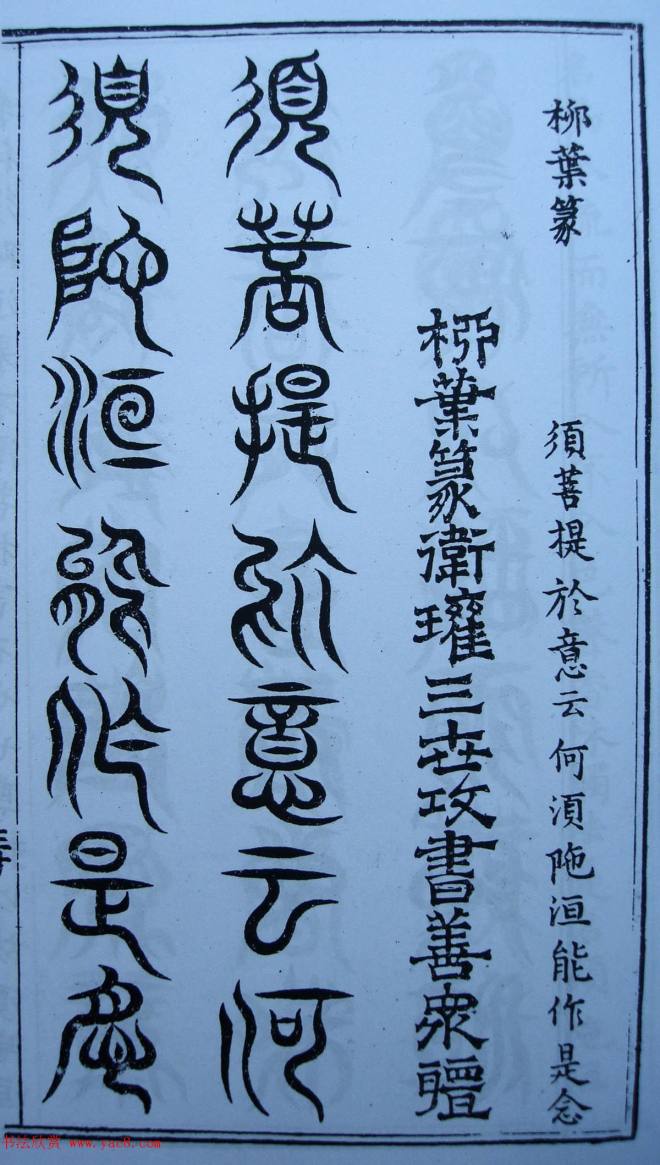 柳葉篆
須菩提於意云何須陁洹能作是念
柳葉篆衛瓘三世攻書善衆體
須菩提於意云何
須陁洹能作是念
书法欣赏 www.yac8.com